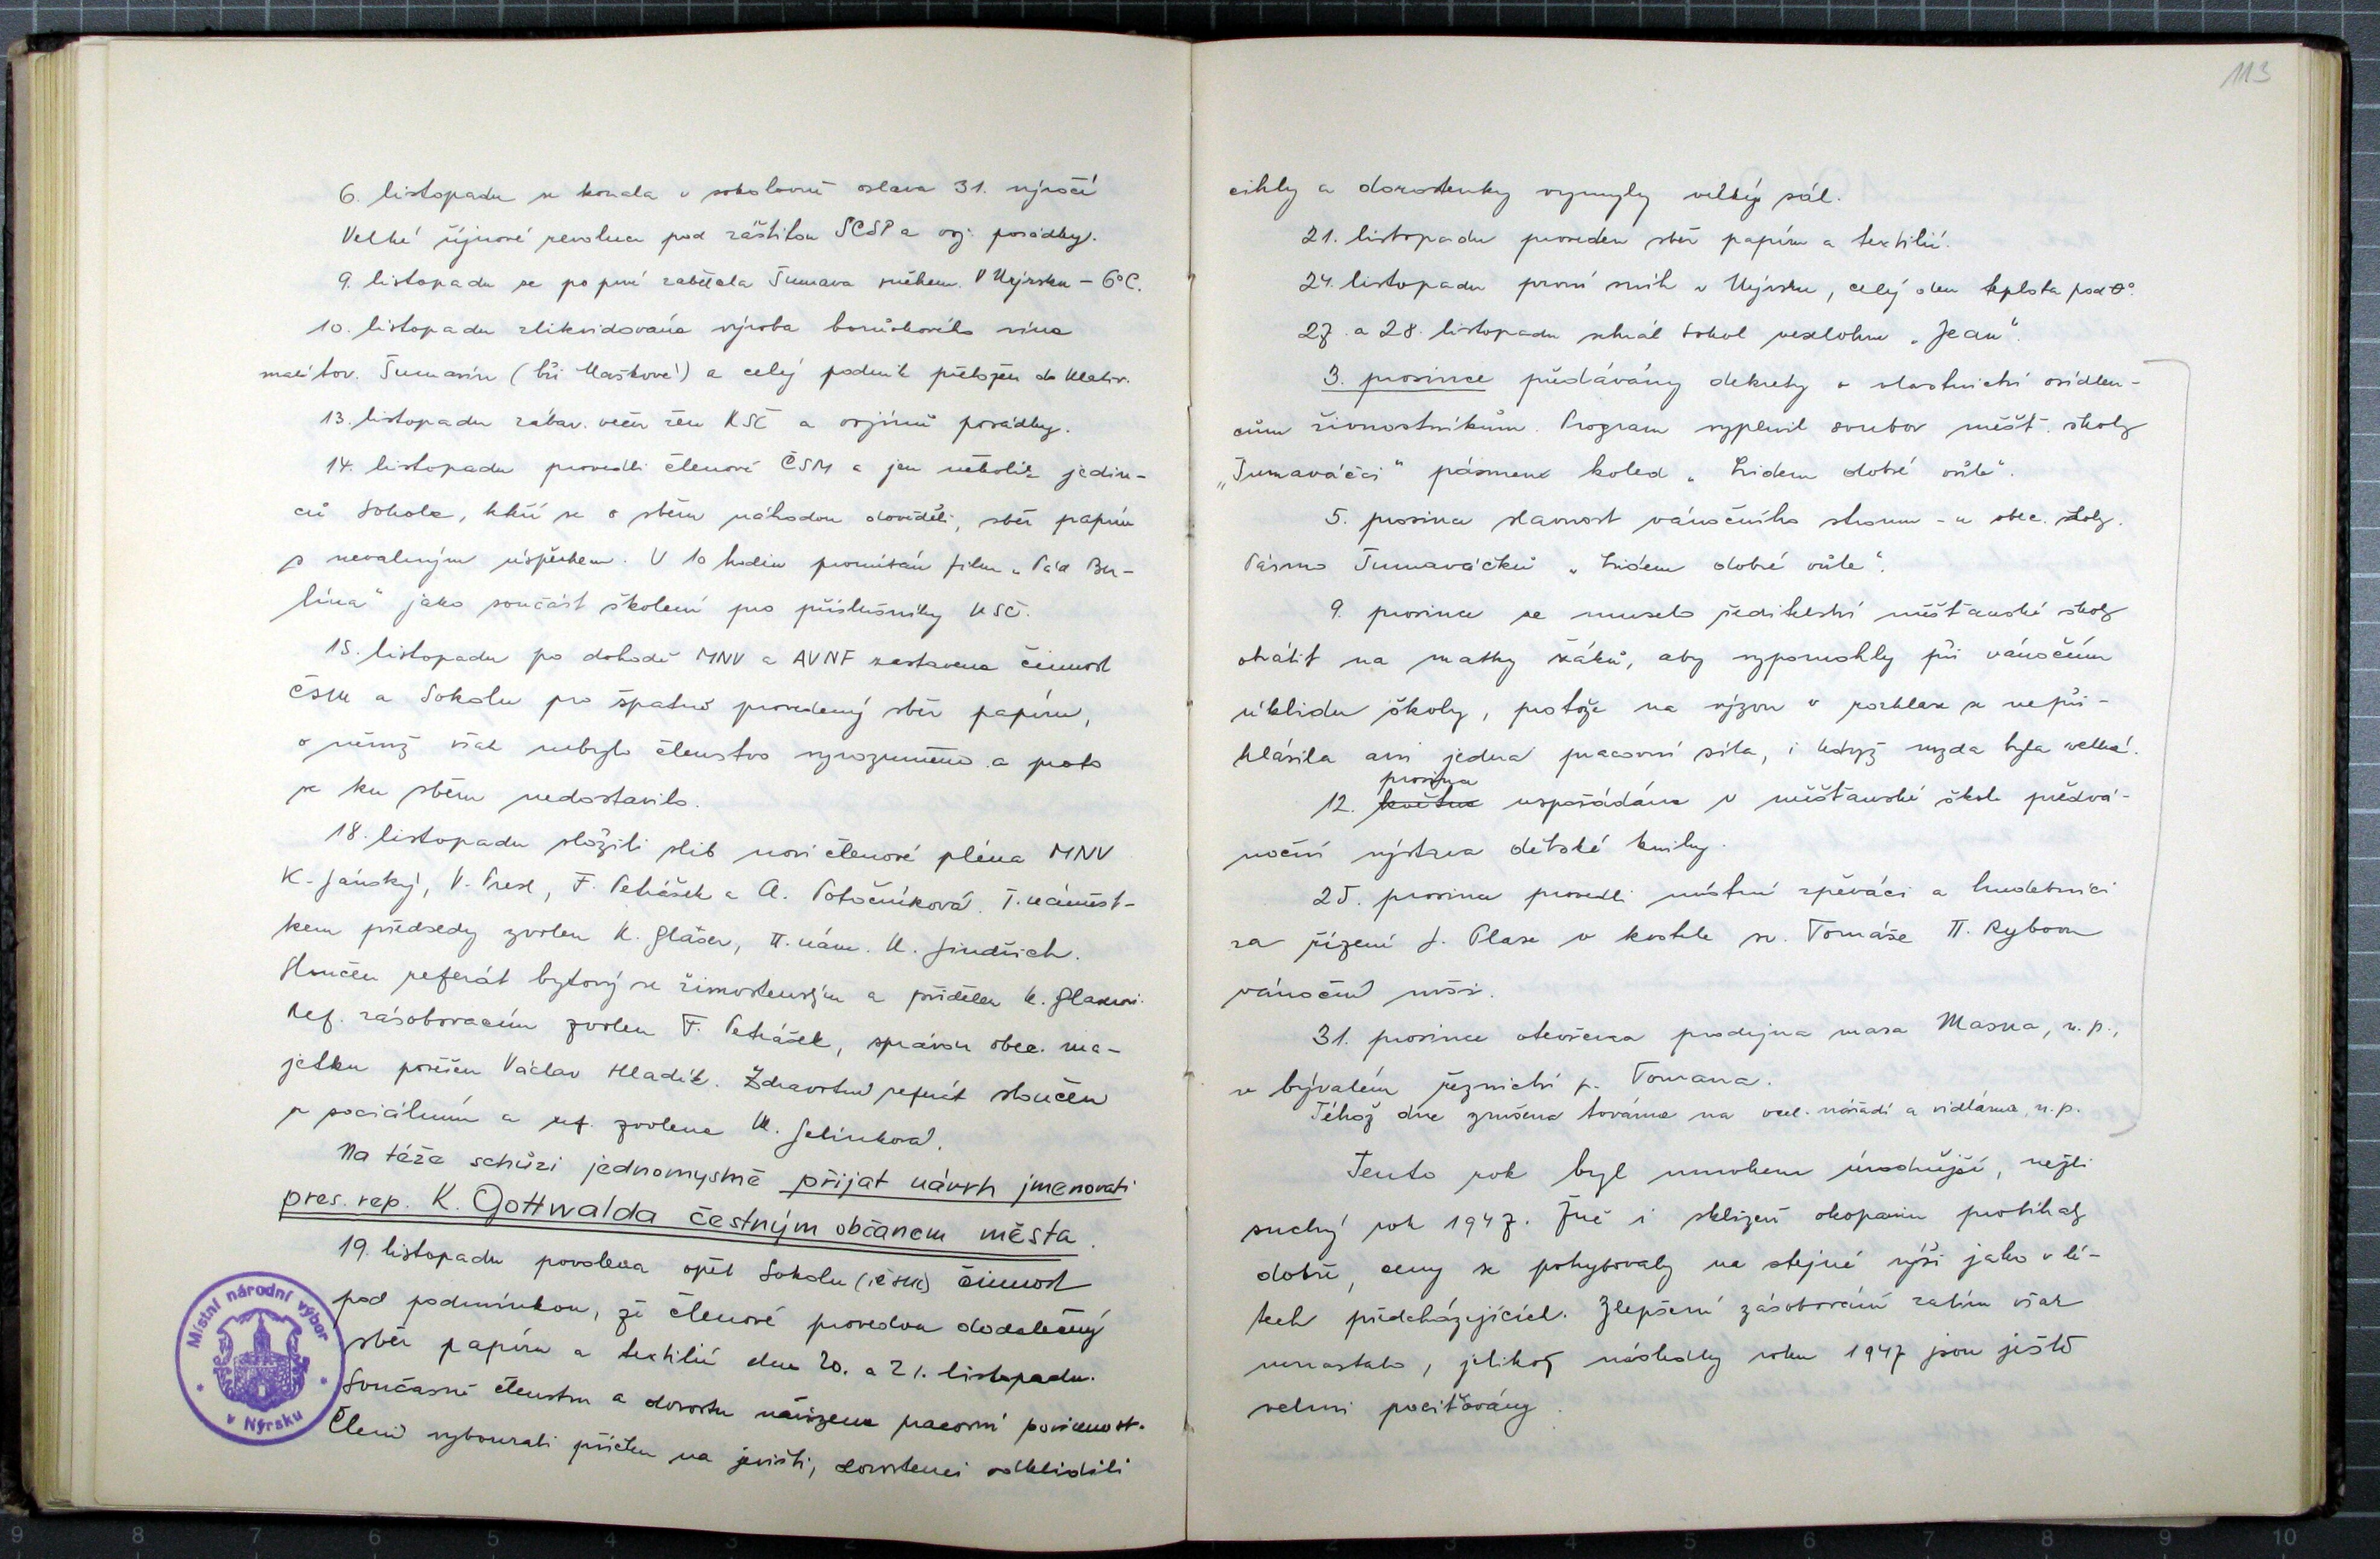 6. listopadu se konala v sokolovně oslava 31. výročí
Velké říjnové revoluce pod záštitou SČSP a voj. posádky.
9. listopadu se po prvé zabělala Šumava sněhem. V Nýrsku – 6°C.
10. listopadu zlikvidována výroba borůvkového vína
malé tov. Šumavín (bři Maškové) a celý podnik přeložen do Klatov.
13. listopadu zábav. večer žen KSČ a vojínů posádky.
14. listopadu provedli členové ČSM a jen několik jedin-
ců Sokola, kteří se o sběru náhodou dověděli, sběr papíru
s nevalným úspěchem. V 10 hodin promítán film „Pád Ber-
lína" jako součást školení pro příslušníky KSČ.
15. listopadu po dohodě MNV a AVNF zastavena činnost
ČSM a Sokolu pro špatně provedený sběr papíru,
o němž však nebylo členstvo vyrozuměno a proto
se ku sběru nedostavilo.
18. listopadu složili slib noví členové pléna MNV
K. Jánský, V. Prex, F. Petrášek a A. Potočníková. I. náměst-
kem předsedy zvolen K. Gläser, II. nám. K. Jindřich.
Sloučen referát bytový se živnostenským a přidělen K. Glaserovi.
Ref. zásobovacím zvolen F. Petrášek, správou obec. ma-
jetku pověřen Václav Hladík. Zdravotní referát sloučen
se sociálním a ref. zvolena M. Jelínková.
Na téže schůzi jednomyslně přijat návrh jmenovati
pres. rep. K. Gottwalda čestným občanem města.
19. listopadu povolena opět Sokolu (i ČSM) činnost
pod podmínkou, že členové provedou dodatečný
sběr papíru a textilií dne 20. a 21. listopadu.
Současně členstvu a dorostu nařízena pracovní povinnost.
Členi vybourali příčku na jevišti, dorostenci odklidili
Místní národní výbor
v Nýrsku
113
cihly a dorostenky vymyly velký sál.
21. listopadu proveden sběr papíru a textilií.
24. listopadu první sníh v Nýrsku, celý den teplota pod 0°.
27. a 28. listopadu sehrál Sokol veselohru „Jean".
3. prosince předávány dekrety o vlastnictví osídlen-
cům živnostníkům. Program vyplnil soubor měšť. školy
„Šumaváčci" pásmem koled „Lidem dobré vůle".
5. prosince slavnost vánočního stromu – u obec. školy.
Pásmo Šumaváčků „Lidem dobré vůle".
9. prosince se muselo ředitelství měšťanské školy
obrátit na matky žáků, aby vypomohly při vánočním
úklidu školy, protože na výzvu v rozhlase se nepři-
hlásila ani jedna pracovní síla, i když mzda byla velká.
prosince
12. května uspořádána v měšťanské škole předvá-
noční výstava dětské knihy.
25. prosince provedli místní zpěváci a hudebníci
za řízení J. Plase v kostele sv. Tomáše II. Rybovu
vánoční mši.
31. prosince otevřena prodejna masa Masna, n. p.,
v bývalém řeznictví p. Tomana.
Téhož dne zrušena továrna na ocel. nářadí a vidlárna, n. p.
Tento rok byl mnohem úrodnější, nežli
suchý rok 1947. Žně i sklizeň okopanin probíhaly
dobře, ceny se pohybovaly na stejné výši jako v lé-
tech předcházejících. Zlepšení zásobování zatím však
nenastalo, jelikož následky roku 1947 jsou ještě
velmi pociťovány.